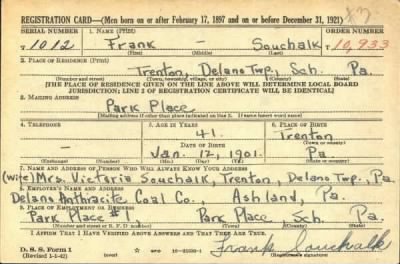 REGISTRATION CARD—(Men born on or after February 17, 1897 and on or before December 31, 1921)
SERIAL NUMBER 1. NAME (Print) ORDER NUMBER
1012 Frank — Souchalk 10,933
(First) (Middle) (Last)
2. PLACE OF RESIDENCE (Print)
Trenton, Delano Twp., Sch. Pa.
(Number and street) (Town, township, village, or city) (County) (State)
[THE PLACE OF RESIDENCE GIVEN ON THE LINE ABOVE WILL DETERMINE LOCAL BOARD
JURISDICTION; LINE 2 OF REGISTRATION CERTIFICATE WILL BE IDENTICAL]
3. MAILING ADDRESS
Park Place
[Mailing address if other than place indicated on line 2. If same insert word same]
4. TELEPHONE 5. AGE IN YEARS 6. PLACE OF BIRTH
41. Trenton
DATE OF BIRTH (Town or county)
Jan. 12, 1901. Pa.
(Exchange) (Number) (Mo.) (Day) (Yr.) (State or country)
7. NAME AND ADDRESS OF PERSON WHO WILL ALWAYS KNOW YOUR ADDRESS
(wife) Mrs. Victoria Souchalk, Trenton, Delano Twp., Pa.
8. EMPLOYER'S NAME AND ADDRESS
Delano Anthracite Coal Co., Ashland, Pa.
9. PLACE OF EMPLOYMENT OR BUSINESS
Park Place #1, Park Place, Sch. Pa.
(Number and street or R. F. D. number) (Town) (County) (State)
I AFFIRM THAT I HAVE VERIFIED ABOVE ANSWERS AND THAT THEY ARE TRUE.
D. S. S. Form 1
(Revised 1-1-42) Frank Souchalk
(Registrant's signature)